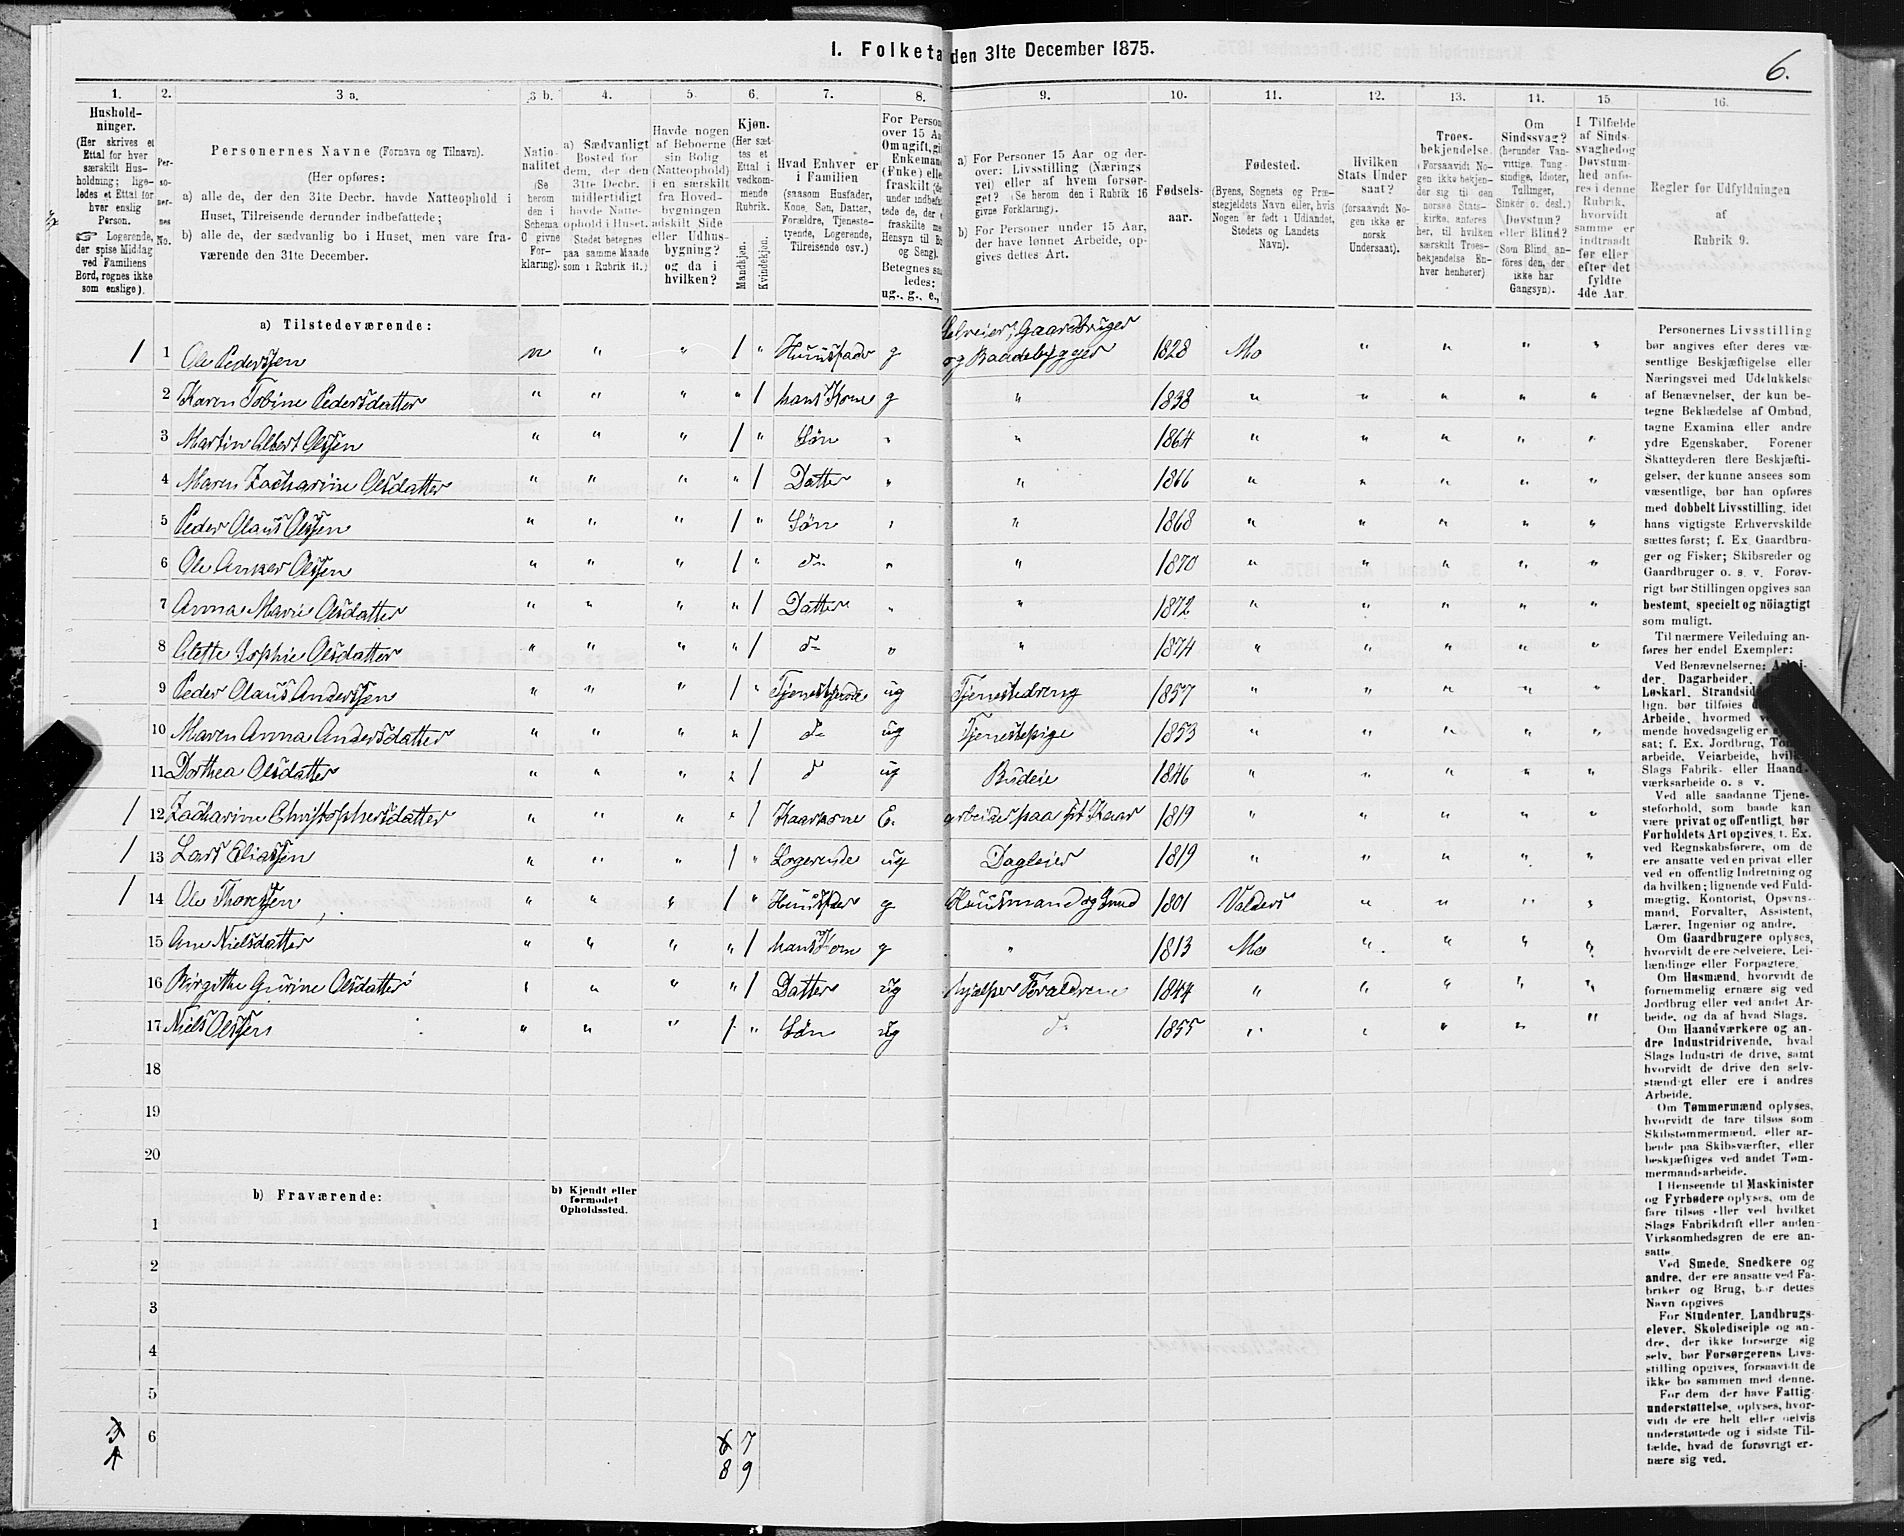 I. Folketa den 31te December 1875.
6.
1. 2. 3 a. 3 b. 4. 5. 6. 7. 8. 9. 10. 11. 12. 13. 14. 15. 16.
Hushold-
ninger.
(Her skrives et
Ettal for hver
særskilt Hus-
holdning; lige-
ledes et Ettal for
hver enslig
Person.
☞ Logerende,
der spise Middag
ved Familiens
Bord, regnes ikke
som enslige).
Per-
so-
ner-
nes
No.
Personernes Navne (Fornavn og Tilnavn).
(Her opføres:
a) alle de, der den 31te Decbr. havde Natteophold i
Huset, Tilreisende derunder indbefattede;
b) alle de, der sædvanlig bo i Huset, men vare fra-
værende den 31te December.
Natio-
nalitet
(Se
herom
den i
Schema
C givne
For-
klaring).
a) Sædvanligt
Bosted for
dem, der den
31te Decbr.
midlertidigt
havde Natte-
ophold i Huset.
Stedet betegnes
paa samme Maade
som i Rubrik 11.)
Havde nogen
af Beboerne
sin Bolig
(Natteophold)
i en særskilt
fra Hoved-
bygningen
adskilt Side
eller Udhus-
bygning?
og da i
hvilken?
Kjøn.
(Her sæt-
tes et
Ettal i
vedkom-
mende
Rubrik.
Mandkjøn.
Kvindekjøn.
Hvad Enhver er
i Familien
(saasom Husfader,
Kone, Søn, Datter,
Forældre, Tjeneste-
tyende, Logerende,
Tilreisende osv.)
For Person
over 15 Aa
Om ugift, gi
Enkeman
(Enke) elle
fraskilt (de
under indbefa
tede de, der e
fraskilte me
Hensyn til Bo
og Seng).
Betegnes saa
ledes:
ug., g., e.,
a) For Personer 15 Aar og der-
over: Livsstilling (Nærings
vei) eller af hvem forsør-
get? (Se herom den i Rubrik 16
givne Forklaring).
b) For Personer under 15 Aar,
der have lønnet Arbeide, op-
gives dettes Art.
Fødsels-
aar.
Fødested.
(Byens, Sognets og Præ-
stegjeldets Navn eller, hvis
Nogen er født i Udlandet,
Stedets og Landets
Navn).
Hvilken
Stats Under
saat?
(forsaavidt No-
gen ikke er
norsk
Undersaat).
Troes-
bekjendelse.
(Forsaavidt No-
gen ikke bekjen-
der sig til den
norske Stats-
kirke, anføres
her, til hvilken
særskilt Troes-
bekjendelse En-
hver henhører)
Om
Sindssvag?
(herunder Van-
vittige, Tung-
sindige, Idioter,
Tullinger,
Sinker o. desl.)
Døvstum?
eller Blind?
(Som Blind an-
føres den, der
ikke har
Gangsyn).
I Tilfælde
af Sinds-
svaghed og
Døvstum-
hed anfø-
res i denne
Rubrik,
hvorvidt
samme er
indtraadt
før eller
efter det
fyldte
4de Aar.
Regler før Udfyldningen
af
Rubrik 9.
a) Tilstedeværende:
1 1 Ole Pederssen n " " 1 " Huusfader g Selveier, Gaardbruger og Baadebygger 1828 Mo " " " "
2 Karen Tobine Pedersdatter " " " " 1 hans Kone g " 1838 " " " " "
3 Martin Albert Olssen " " " 1 " Søn " " 1864 " " " " "
4 Maren Zacharine Olsdatter " " " " 1 Datter " " 1866 " " " " "
5 Peder Olaus Olssen " " " 1 " Søn " " 1868 " " " " "
6 Ole Anker Olssen " " " 1 " do " " 1870 " " " " "
7 Anna Marie Olsdatter " " " " 1 Datter " " 1872 " " " " "
8 Sophie Olsdatter " " " " 1 do " " 1874 " " " " "
9 Peder Olaus Anderssen " " " 1 " ug Tjenestedreng 1857 " " " " "
10 Maren Anna Andersdatter " " " " 1 do ug Tjenestepige 1853 " " " " "
11 Dorthea Olsdatter " " " " 1 d ug Budeie 1846 " " " " "
1 12 Zacharine Christophersdatter " " " " 1 Kaarkone E. arbeider paa sit Kaar 1819 " " " " "
1 13 Lars Eliassen " " " 1 " Logerende ug Dagleier 1819 " " " " "
1 14 Ole Thoressen " " " 1 " Huusfader g Huusmand og 1801 Valders " " " "
15 Ane Nielsdatter " " " " 1 hans Kone g " 1813 Mo " " " "
16 Birgithe Gurine Olsdatter " " " " 1 Datter ug hjælper Forældrene 1844 " " " " "
17 Niels Olssen " " " 1 " Søn ug do 1855 " " " " "
18
19
20
b) Fraværende:
b) Kjendt eller
formodet
Opholdssted.
1
2
3
4
5
6
3 6 7
4 8 9
Personernes Livsstilling
bør angives efter deres væ-
sentlige Beskjæftigelse eller
Næringsvei med Udelukkelse
af Benævnelser, der kun be-
tegne Beklædelse af Ombud,
tagne Examina eller andre
ydre Egenskaber. Forener
Skatteyderen flere Beskjæfti-
gelser, der kunne ansees som
væsentlige, bør han opføres
med dobbelt Livsstilling, idet
hans vigtigste Erhvervskilde
sættes først; f. Ex Gaardbru-
ger og Fisker; Skibsreder og
Gaardbruger o. s. v. Forøv-
rigt bør Stillingen opgives saa
bestemt, specielt og nöiagtigt
som muligt.
Til nærmere Veiledning an-
føres her endel Exempler:
Ved Benævnelserne:
der, Dagarbeider,
Løskarl, Strandsid
lign. bør tilføies
Arbeide, hvormed
mende hovedsagelig er
sat; f. Ex. Jordbrug,
arbeide, Veiarbeide, hvilk
Slags Fabrik- eller Haand-
værksarbeide o. s. v.
Ved alle saadanne Tjene-
steforhold, som baade kan
være privat og offentligt, bør
Forholdets Art opgives, t. Ex.
ved Regnskabsførere, om de
ere ansatte ved en privat eller
ved en offentlig Indretning og
da hvilken; lignende ved Fuld-
mægtig, Kontorist, Opsyns-
mand, Forvalter, Assistent,
Lærer, Ingeniør og andre.
Om Gaardbrugere oplyses,
hvorvidt de ere Selveiere, Lei-
lændinge eller Forpagtere.
Om Husmænd, hvorvidt de
fornemmelig ernære sig ved
Jordbrug eller ved andet Ar-
beide, og da af hvad Slags.
Om Haandværkere og an-
dre Industridrivende, hvad
Slags Industri de drive, samt
hvorvidt de drive den selv-
stændigt eller ere i andres
Arbeide.
Om Tømmermænd oplyses,
hvorvidt de fare tilsøs som
Skibstømmermænd, eller ar-
beide paa Skibsværfter, eller
beskjæftiges ved andet Tøm-
mermandsarbeide.
I Henseende til Maskinister
og Fyrbødere oplyses, om de
fare tilsøs eller ved hvilket
Slags Fabrikdrift eller anden
Virksomhedsgren de ere an-
satte.
Ved Smede, Snedkere og
andre, der ere ansatte ved Fa-
briker og Brug, bør dettes
Navn opgives
For Studenter, Landbrugs-
elever, Skoledisciple og an-
dre, der ikke forsørge sig
selv, bør Forsørgerens Livs-
stilling opgives, forsaavidt de
ikke bo sammen med denne.
For dem der have Fattig-
understøttelse, oplyses, hvor-
vidt de ere helt eller delvis
understøttede og i sidste Til-
fælde, hvad de forøvrigt er-
nære sig ved.